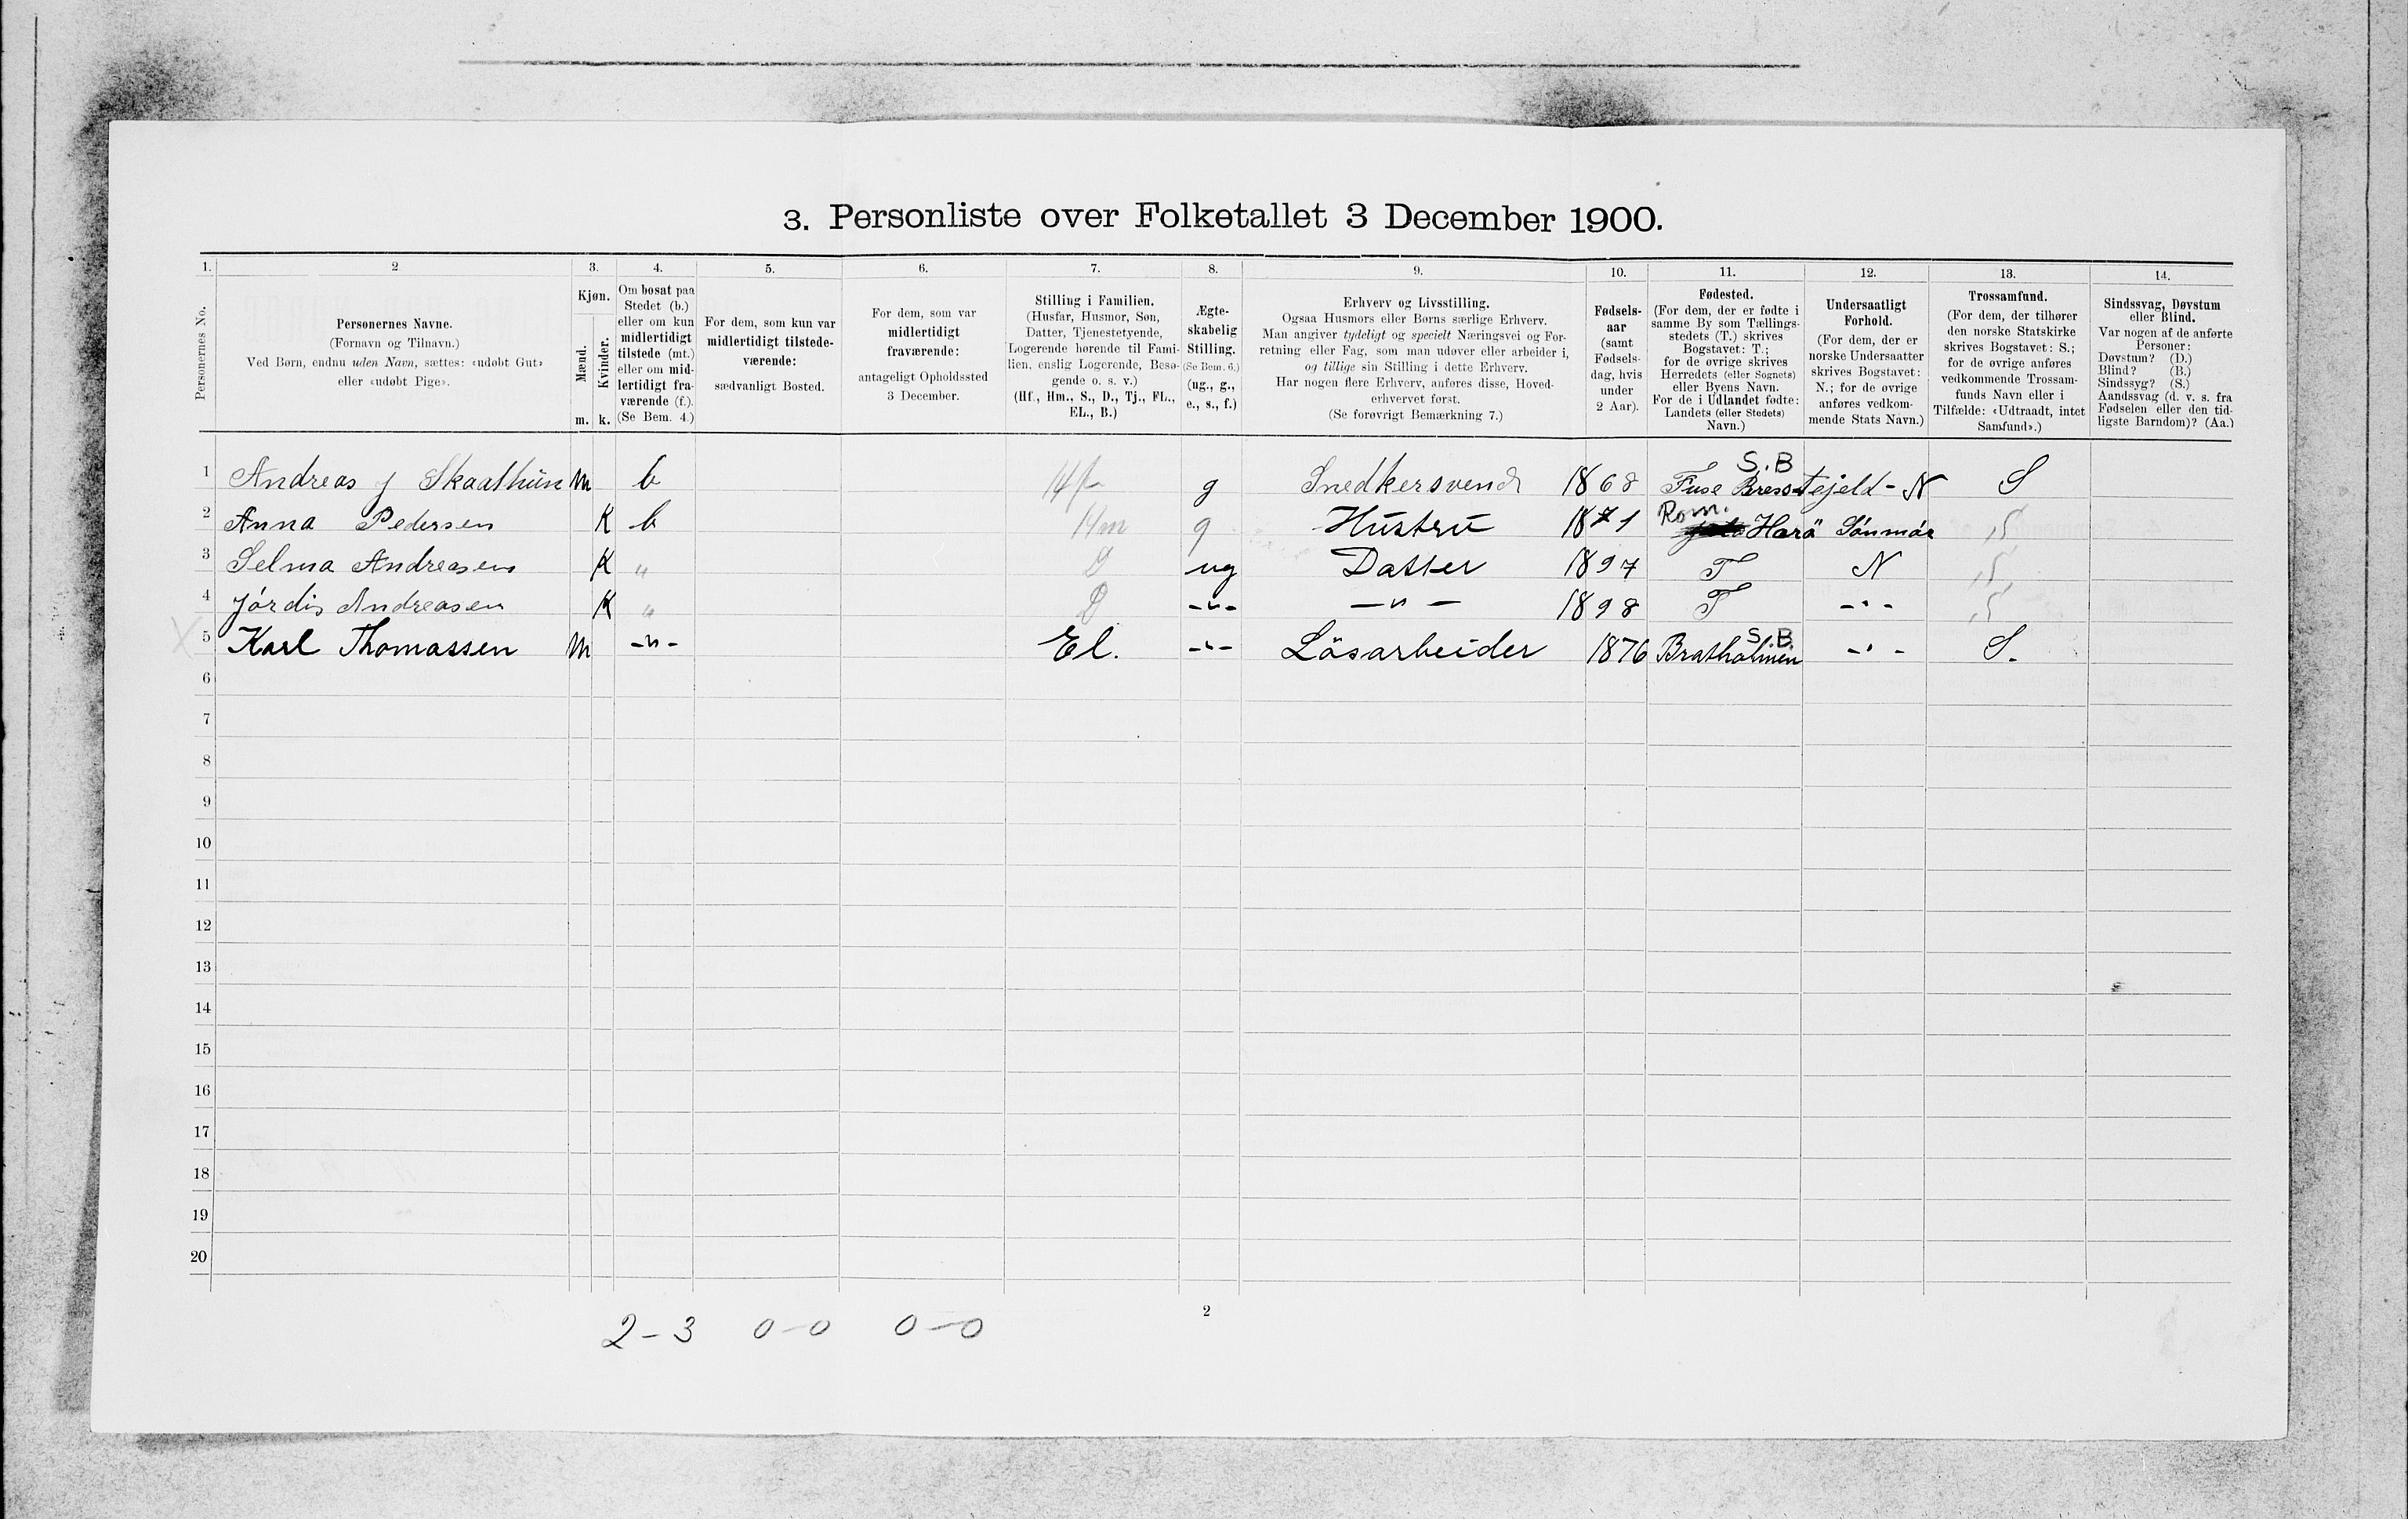 3. Personliste over Folketallet 3 December 1900.
1. 2 3. 4. 5. 6. 7. 8. 9. 10. 11. 12. 13. 14.
Personernes No.
Personernes Navne.
(Fornavn og Tilnavn.)
Ved Børn, endnu uden Navn, sættes: «udøbt Gut»
eller «udøbt Pige».
Kjøn.
Mænd.
m.
Kvinder.
k.
Om bosat paa
Stedet (b.)
eller om kun
midlertidigt
tilstede (mt.)
eller om mid-
lertidigt fra-
værende (f.).
(Se Bem. 4.)
For dem, som kun var
midlertidigt tilstede-
værende:
sædvanligt Bosted.
For dem, som var
midlertidigt
fraværende:
antageligt Opholdssted
3 December.
Stilling i Familien.
(Husfar, Husmor, Søn,
Datter, Tjenestetyende,
Logerende hørende til Fami-
lien, enslig Logerende, Besø-
gende o. s. v.)
(Hf., Hm., S., D., Tj., FL.,
EL., B.)
Ægte-
skabelig
Stilling.
(Se Bem. 6.)
(ug., g.,
e., s., f.)
Erhverv og Livsstilling.
Ogsaa Husmors eller Børns særlige Erhverv.
Man angiver tydeligt og specielt Næringsvei og For-
retning eller Fag, som man udøver eller arbeider i,
og tillige sin Stilling i dette Erhverv.
Har nogen flere Erhverv, anføres disse, Hoved-
erhvervet først.
(Se forøvrigt Bemærkning 7.)
Fødsels-
aar
(samt
Fødsels-
dag, hvis
under
2 Aar).
Fødested.
(For dem, der er fødte i
samme By som Tællings-
stedets (T.) skrives
Bogstavet: T.;
for de øvrige skrives
Herredets (eller Sognets)
eller Byens Navn.
For de i Udlandet fødte:
Landets (eller Stedets)
Navn.)
Undersaatligt
Forhold.
(For dem, der er
norske Undersaatter
skrives Bogstavet:
N.; for de øvrige
anføres vedkom-
mende Stats Navn.)
Trossamfund.
(For dem, der tilhører
den norske Statskirke
skrives Bogstavet: S.;
for de øvrige anføres
vedkommende Trossam-
funds Navn eller i
Tilfælde: «Udtraadt, intet
Samfund».)
Sindssvag, Døvstum
eller Blind.
Var nogen af de anførte
Personer:
Døvstum? (D.)
Blind? (B.)
Sindssyg? (S.)
Aandssvag (d. v. s. fra
Fødselen eller den tid-
ligste Barndom)? (Aa.)
S.B
1 Andreas J Skaathun m b Hf g Snedkersvend 1868 Fuse - N S
Rom.
2 Anna Pedersen K b Hm g Hustru 1871 Harö Sönmör S
3 Selma Andreasen K " D ug Datter 1897 T N S
4 Jördis Andreasen K " D -"- -"- 1898 T -"- S
S.B.
X 5 Karl Thomassen m -"- El. -"- Lösarbeider 1876 Bratholmen -"- S.
6
7
8
9
10
11
12
13
14
15
16
17
18
19
20
2
2-3 0-0 0-0